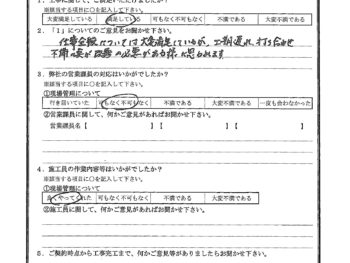 ※該当する項目に○を記入して下さい。
大変満足している 満足している 可もなく不可もなく 不満である 大変不満である
2．「1」についてのご意見をお聞かせ下さい。
仕事全般については大変満足しているが、工事遅れ、打ち合わせ
不備は 改善の必要がある様に思われます
3．弊社の営業課員の対応はいかがでしたか？
※該当する項目に○を記入して下さい。
①現場管理について
行き届いていた 可もなく不可もなく 不満である 大変不満である 一度も会わなかった
②営業課員に関して、何かご意見があればお聞かせ下さい。
営業課員名【 】【 】【 】
4．施工員の作業内容等はいかがでしたか？
※該当する項目に○を記入して下さい。
①現場管理について
良くやってくれた 可もなく不可もなく 不満である 大変不満である
②施工員に関して、何かご意見があればお聞かせ下さい。
5．ご契約時点から工事完工まで、何かご意見等がありましたらお聞かせ下さい。